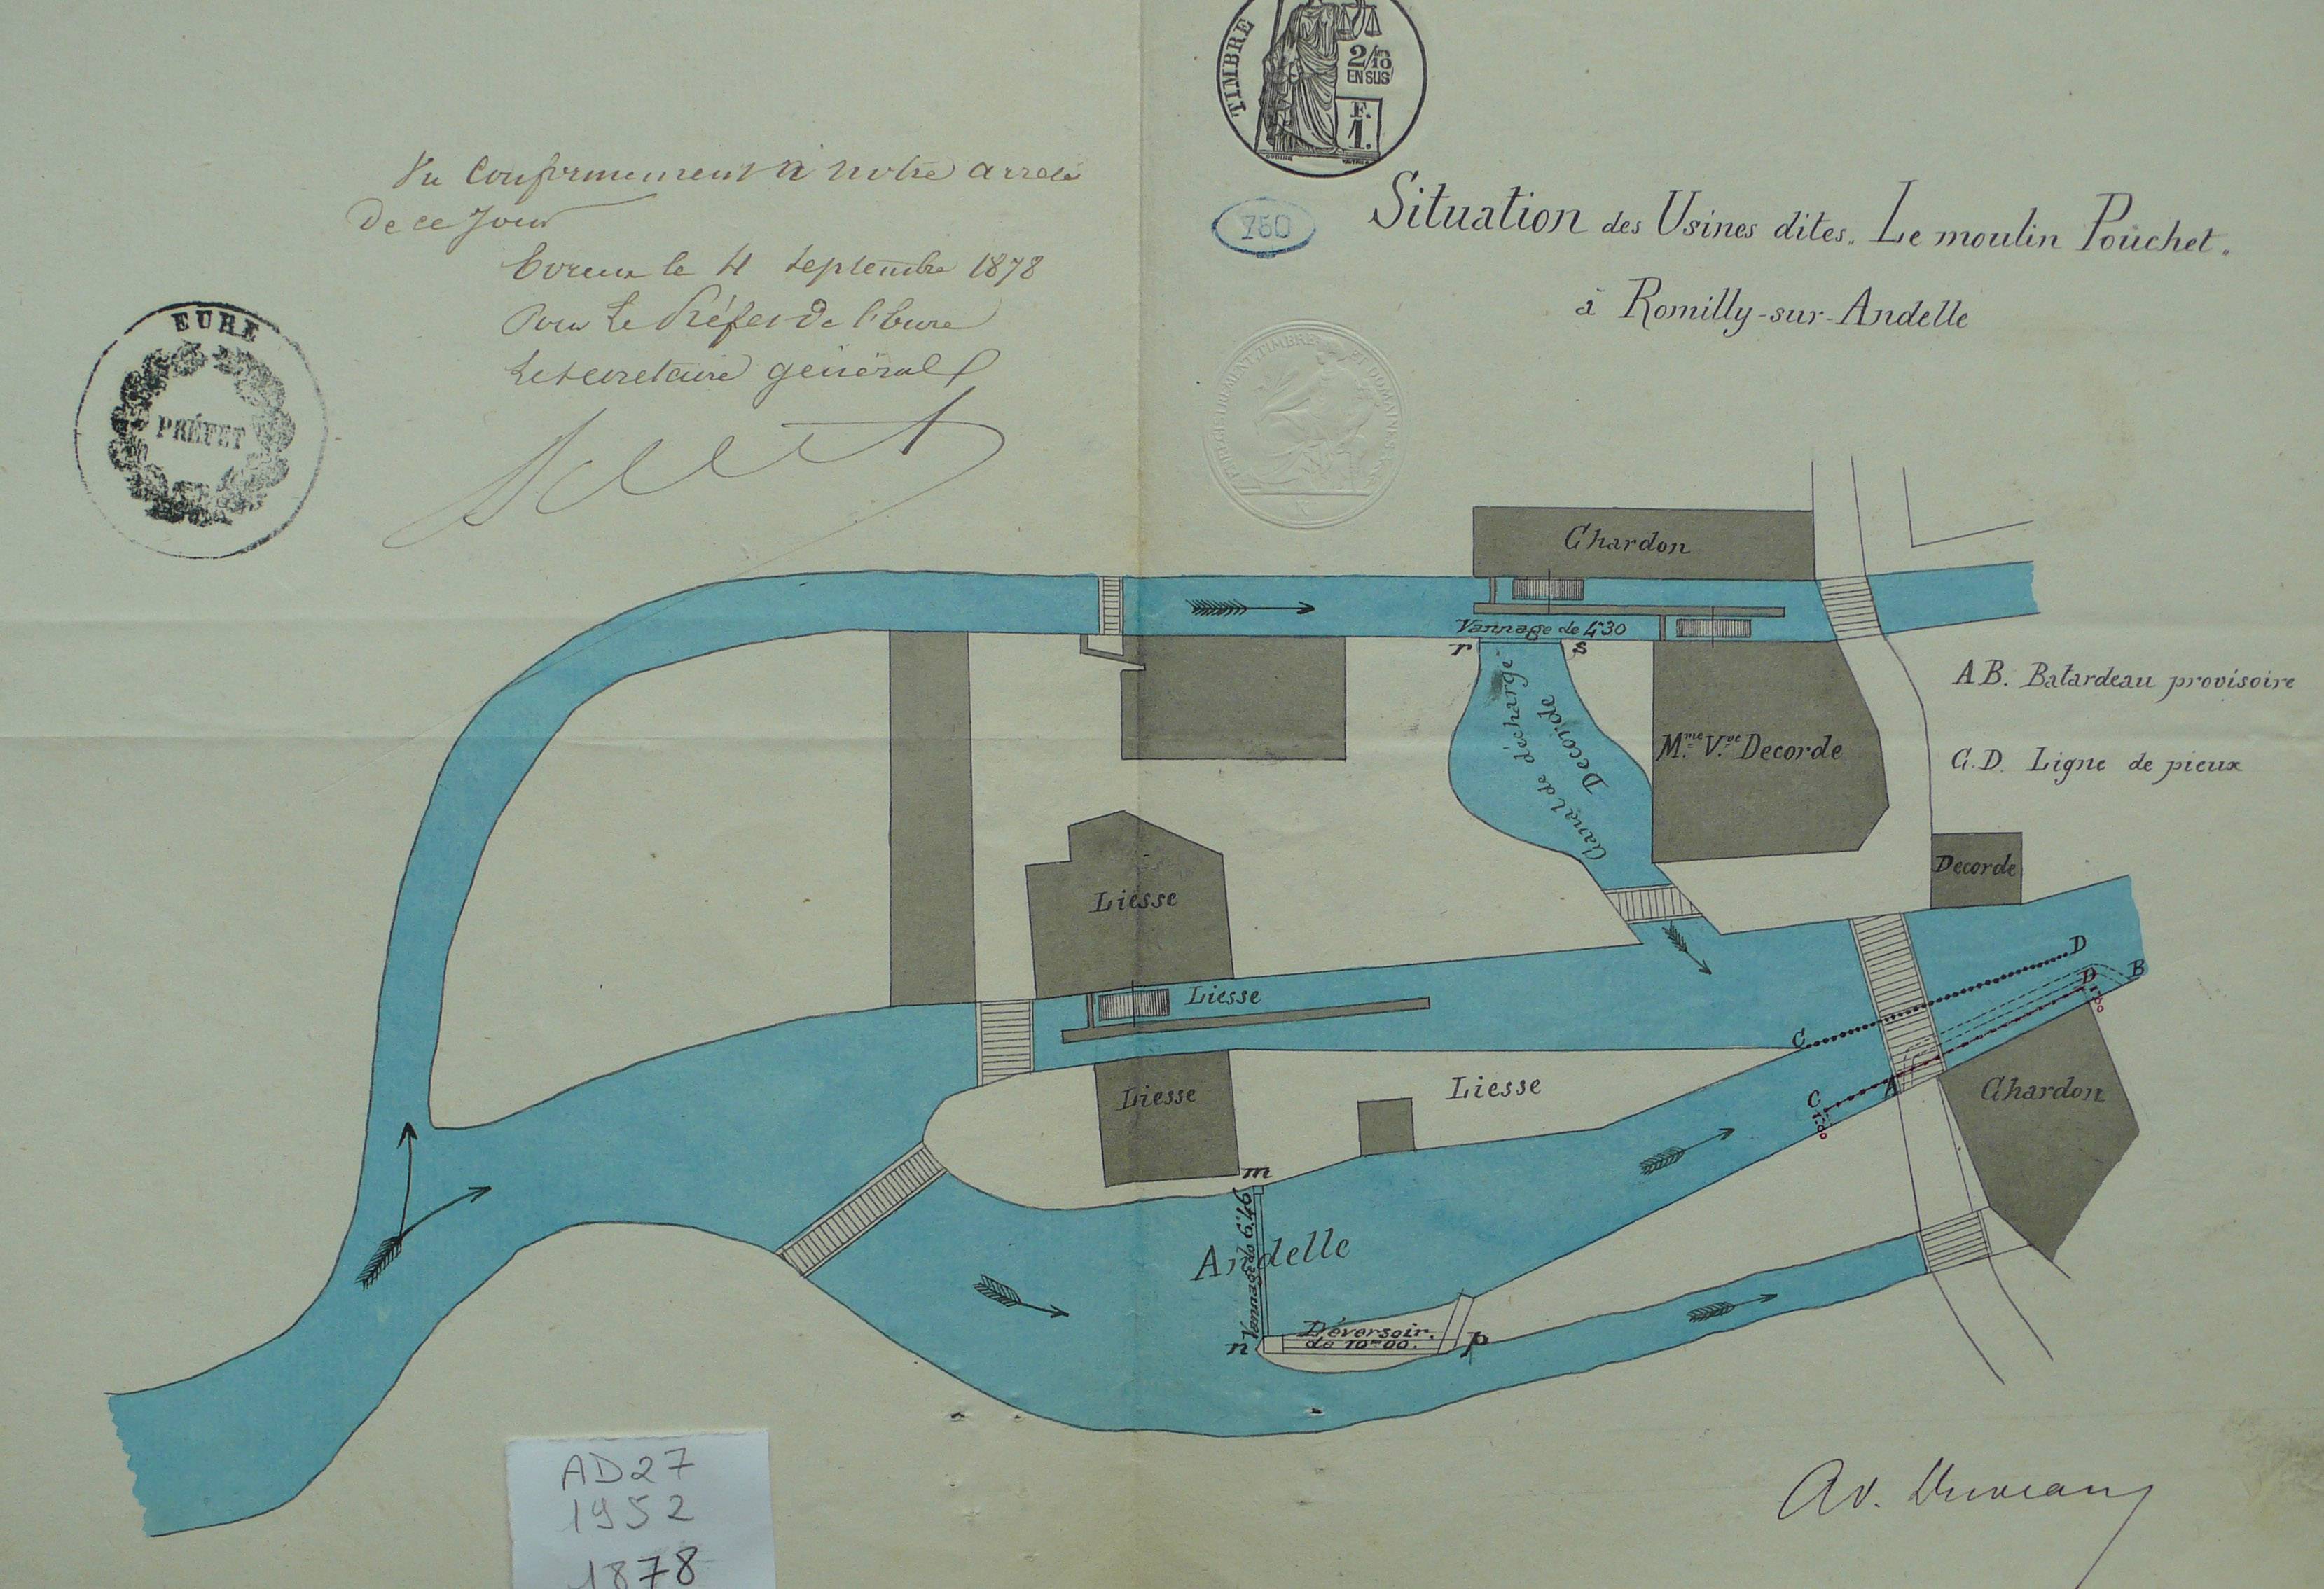 TIMBRE
2/10
EN SUS
F.
1.
Vu conformement à notre arreté
De ce Jour
Evreux le 4 Septembre 1878
Pour Le Préfet de l'Eure
Le secretaire général
EURE
PRÉFET
750
Situation des Usines dites „Le moulin Pouchet„
à Romilly-sur-Andelle
ENREGISTREMENT TIMBRE ET DOMAINES
Chardon
Vannage de 4m30
r
s
Canal de décharge
Decorde
Mme Vve Decorde
A B. Batardeau provisoire
C. D. Ligne de pieux
Decorde
Liesse
Liesse
Liesse
Liesse
D
D
B
C
C
A
Chardon
m
Vannage de 6m46
Andelle
n
Déversoir
de 10m00.
p
AD27
1952
1878
Av.